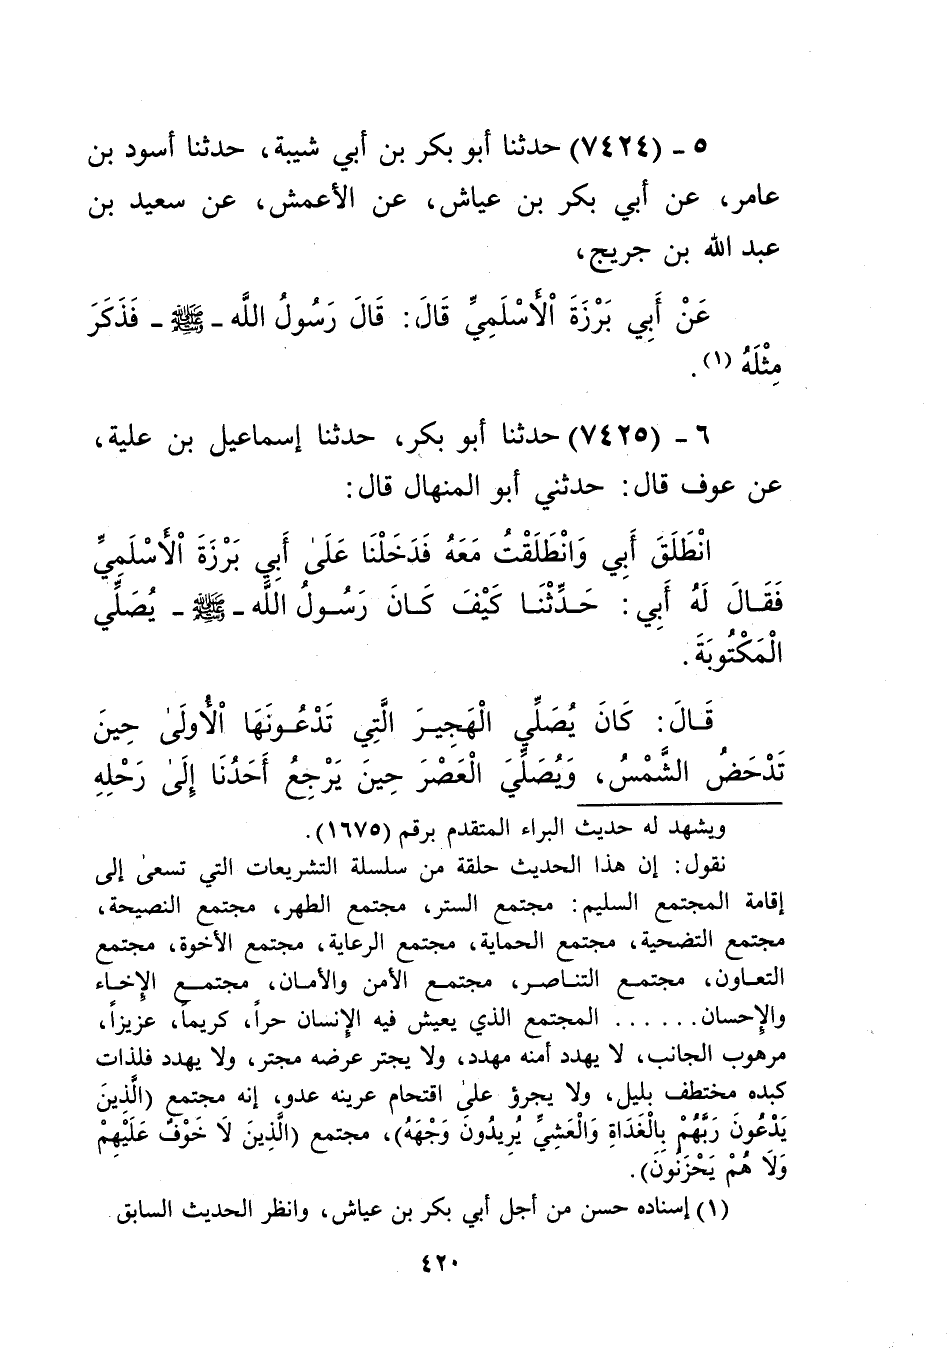 ٥ - (٧٤٢٤) حدثنا أبو بكر بن أبي شيبة، حدثنا أسود بن
عامر، عن أبي بكر بن عياش، عن الأعمش، عن سعيد بن
عبد الله بن جريج،
عَنْ أَبِي بَرْزَةَ الْأَسْلَمِيِّ قَالَ: قَالَ رَسُولُ اللَّه - ﷺ - فَذَكَرَ
مِثْلَهُ (١) .
٦ - (٧٤٢٥) حدثنا أبو بكر، حدثنا إسماعيل بن علية،
عن عوف قال: حدثني أبو المنهال قال:
انْطَلَقَ أَبِي وَانْطَلَقْتُ مَعَهُ فَدَخَلْنَا عَلَىٰ أَبِي بَرْزَةَ الْأَسْلَمِيِّ
فَقَالَ لَهُ أَبِي: حَدِّثْنَا كَيْفَ كَانَ رَسُولُ اللَّه - ﷺ - يُصَلِّي
الْمَكْتُوبَةَ .
قَالَ: كَانَ يُصَلِّي الْهَجِيرَ الَّتِي تَدْعُونَهَا الْأُولَىٰ حِينَ
تَدْحَضُ الشَّمْسُ، وَيُصَلِّيَ الْعَصْرَ حِينَ يَرْجِعُ أَحَدُنَا إِلَىٰ رَحْلِهِ
ويشهد له حديث البراء المتقدم برقم (١٦٧٥).
نقول: إن هذا الحديث حلقة من سلسلة التشريعات التي تسعىٰ إلى
إقامة المجتمع السليم: مجتمع الستر، مجتمع الطهر، مجتمع النصيحة،
مجتمع التضحية، مجتمع الحماية، مجتمع الرعاية، مجتمع الأخوة، مجتمع
التعاون، مجتمع التناصر، مجتمع الأمن والأمان، مجتمع الإخاء
والإحسان...... المجتمع الذي يعيش فيه الإنسان حراً، كريماً، عزيزاً،
مرهوب الجانب، لا يهدد أمنه مهدد، ولا يجتر عرضه مجتر، ولا يهدد فلذات
كبده مختطف بليل، ولا يجرؤ علىٰ اقتحام عرينه عدو، إنه مجتمع (الَّذِينَ
يَدْعُونَ رَبَّهُمْ بِالْغَدَاةِ وَالْعَشِيِّ يُرِيدُونَ وَجْهَهُ)، مجتمع (الَّذِينَ لَا خَوْفٌ عَلَيْهِمْ
وَلَا هُمْ يَحْزَنُونَ).
(١) إسناده حسن من أجل أبي بكر بن عياش، وانظر الحديث السابق.
٤٢٠